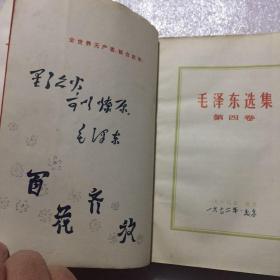 全世界无产者，联合起来！
星星之火
可以燎原
毛泽东
百花齐放
毛泽东选集
第四卷
一九六六年·北京